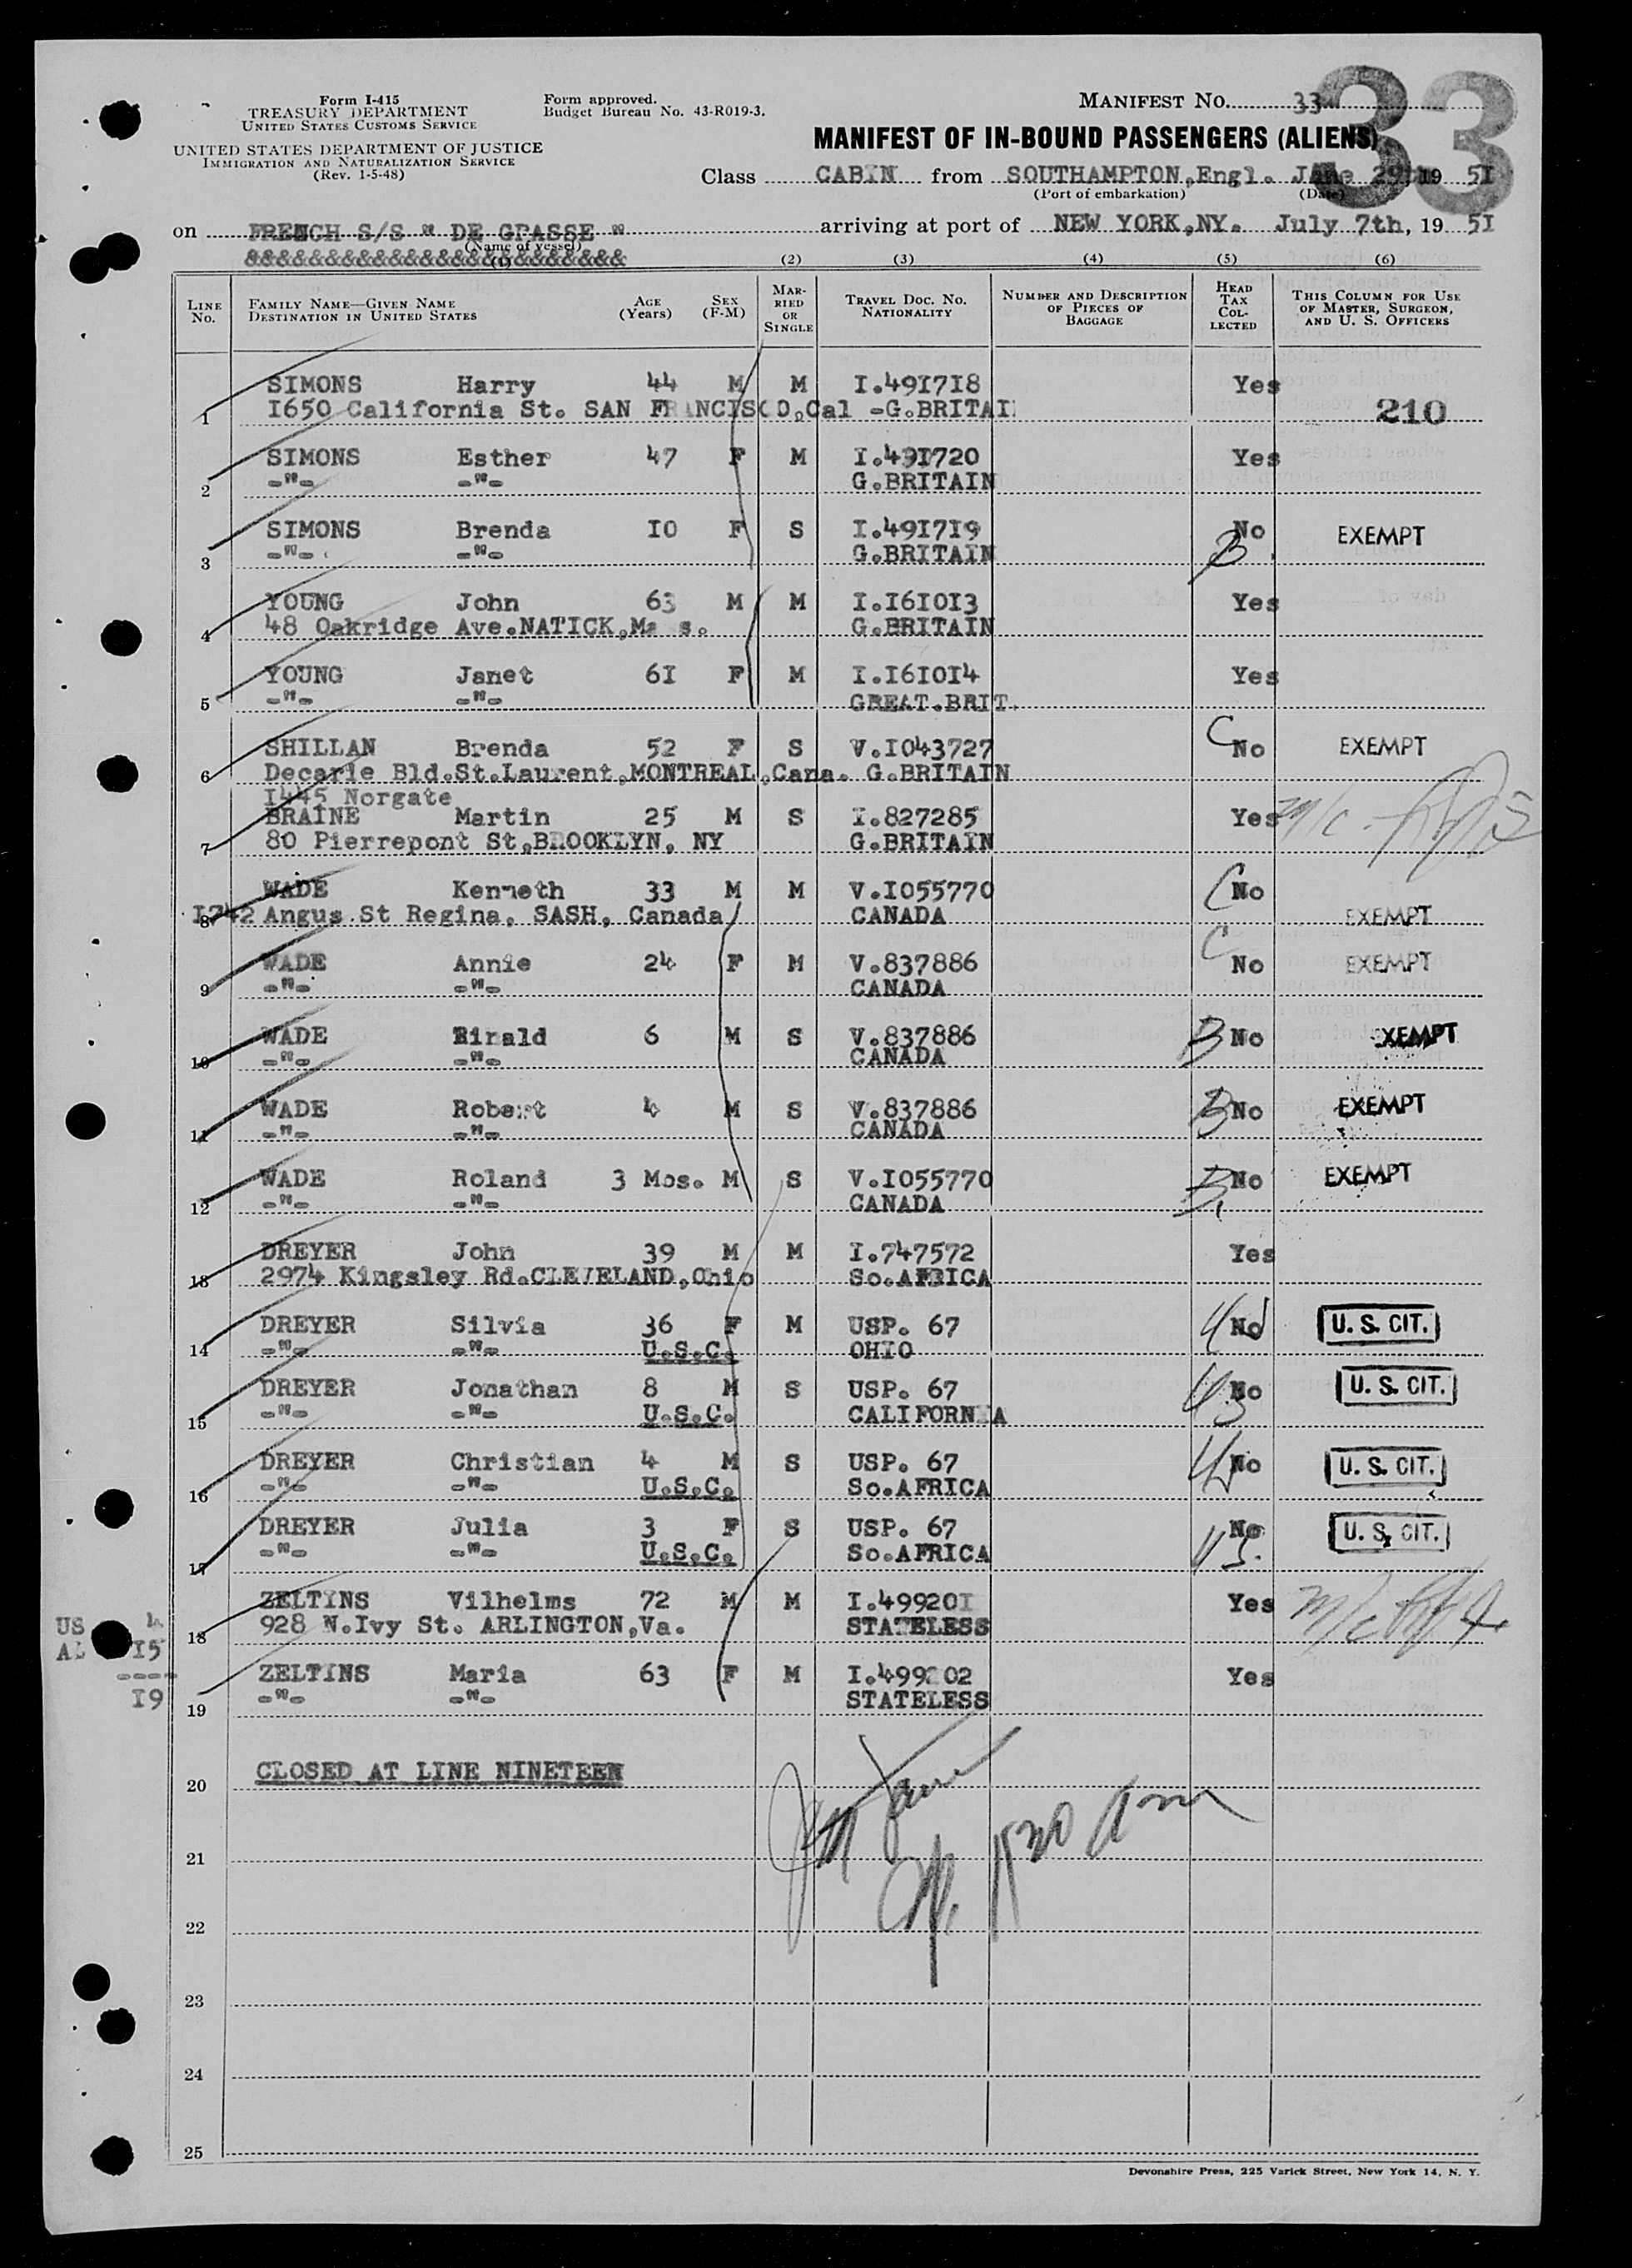 33
Form I-415
TREASURY DEPARTMENT
UNITED STATES CUSTOMS SERVICE
UNITED STATES DEPARTMENT OF JUSTICE
IMMIGRATION AND NATURALIZATION SERVICE
(Rev. 1-5-48)
Form approved.
Budget Bureau No. 43-R019-3.
MANIFEST NO. 33
MANIFEST OF IN-BOUND PASSENGERS (ALIENS)
Class CABIN from SOUTHAMPTON,Engl. June 29th 19 5I
(Port of embarkation) (Date)
on FRENCH S/S " DE GRASSE " arriving at port of NEW YORK,NY. July 7th, 19 5I
(Name of vessel)
&&&&&&&&&&&&&&&&&&&&&&&&
(1) (2) (3) (4) (5) (6)
LINE NO. FAMILY NAME—GIVEN NAME DESTINATION IN UNITED STATES AGE (YEARS) SEX (F-M) MARRIED OR SINGLE TRAVEL DOC. NO. NATIONALITY NUMBER AND DESCRIPTION OF PIECES OF BAGGAGE HEAD TAX COLLECTED THIS COLUMN FOR USE OF MASTER, SURGEON, AND U. S. OFFICERS
SIMONS Harry 44 M M I.49I7I8 Yes
1 I650 California St. SAN FRANCISCO,Cal -G.BRITAI 210
SIMONS Esther 47 F M I.49I720 Yes
2 -"- -"- G.BRITAIN
SIMONS Brenda I0 F S I.49I7I9 No EXEMPT
3 -"- -"- G.BRITAIN B
YOUNG John 63 M M I.I6I0I3 Yes
4 48 Oakridge Ave.NATICK,Ma s. G.BRITAIN
YOUNG Janet 6I F M I.I6I0I4 Yes
5 -"- -"- GREAT.BRIT.
SHILLAN Brenda 52 F S V.I043727 C No EXEMPT
6 Decarie Bld.St.Laurent,MONTREAL,Cana. G.BRITAIN
I445 Norgate
BRAINE Martin 25 M S I.827285 Yes
7 80 Pierrepont St,BROOKLYN, NY G.BRITAIN
WADE Kenneth 33 M M V.I055770 C No
8 I742 Angus.St Regina, SASH, Canada CANADA EXEMPT
WADE Annie 24 F M V.837886 C No EXEMPT
9 -"- -"- CANADA
WADE Rirald 6 M S V.837886 B No EXEMPT
10 -"- -"- CANADA
WADE Robert 4 M S V.837886 B No EXEMPT
11 -"- -"- CANADA
WADE Roland 3 Mos. M S V.I055770 B No EXEMPT
12 -"- -"- CANADA
DREYER John 39 M M I.747572 Yes
13 2974 Kingsley Rd.CLEVELAND,Ohio So.AFRICA
DREYER Silvia 36 F M USP. 67 No U. S. CIT.
14 -"- -"- U.S.C. OHIO
DREYER Jonathan 8 M S USP. 67 No U. S. CIT.
15 -"- -"- U.S.C. CALIFORNIA
DREYER Christian 4 M S USP. 67 No U. S. CIT.
16 -"- -"- U.S.C. So.AFRICA
DREYER Julia 3 F S USP. 67 No U. S. CIT.
17 -"- -"- U.S.C. So.AFRICA
ZELTINS Vilhelms 72 M M I.49920I Yes
18 928 N.Ivy St. ARLINGTON,Va. STATELESS
US 4
AL I5
----
I9
ZELTINS Maria 63 F M I.499202 Yes
19 -"- -"- STATELESS
20 CLOSED AT LINE NINETEEN
21
22
23
24
25
Devonshire Press, 225 Varick Street, New York 14, N. Y.